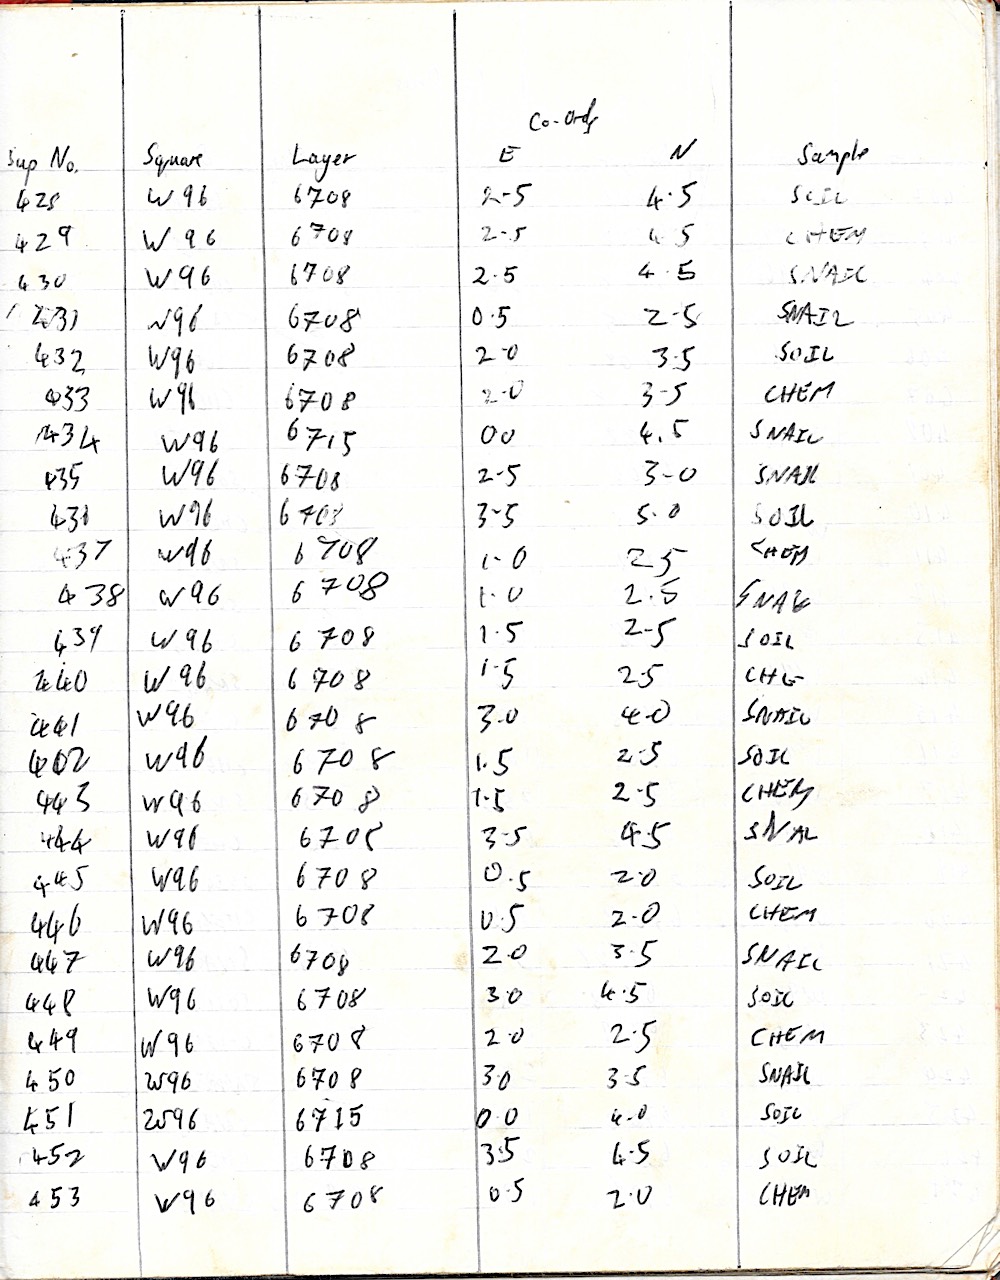 Co-Ords
Sup No. Square Layer E N Sample
428 W96 6708 2-5 4.5 SOIL
429 W96 6708 2-5 4.5 CHEM
430 W96 6708 2.5 4.5 SNAIL
431 W96 6708 0.5 2-5 SNAIL
432 W96 6708 2-0 3.5 SOIL
433 W96 6708 2-0 3-5 CHEM
434 W96 6715 00 4.5 SNAIL
435 W96 6708 2-5 3-0 SNAIL
436 W96 6708 3-5 5.0 SOIL
437 W96 6708 1-0 25 CHEM
438 W96 6708 1.0 2.5 SNAIL
439 W96 6708 1.5 2-5 SOIL
440 W96 6708 1.5 25 CHE
441 W96 6708 3.0 4-0 SNAIL
442 W96 6708 1.5 2.5 SOIL
443 W96 6708 1.5 2-5 CHEM
444 W96 6708 3-5 4.5 SNAL
445 W96 6708 0.5 2.0 SOIL
446 W96 6708 0.5 2-0 CHEM
447 W96 6708 2.0 3.5 SNAIL
448 W96 6708 3.0 4.5 SOIL
449 W96 6708 2.0 2.5 CHEM
450 W96 6708 30 3.5 SNAIL
451 W96 6715 0.0 4.0 SOIL
452 W96 6708 3.5 4.5 SOIL
453 W96 6708 0.5 2.0 CHEM